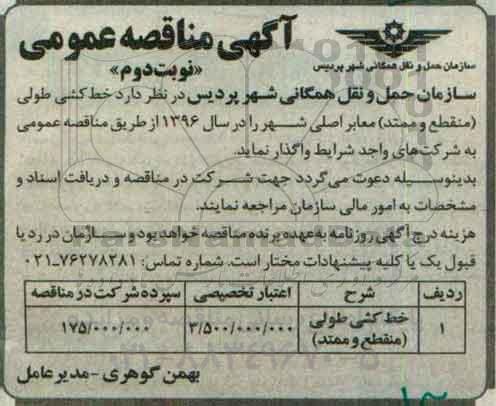 آگهی مناقصه عمومی
«نوبت دوم»
سازمان حمل و نقل همگانی شهر پردیس
سازمان حمل و نقل همگانی شهر پردیس در نظر دارد خط کشی طولی
(منقطع و ممتد) معابر اصلی شهر را در سال ۱۳۹۶ از طریق مناقصه عمومی
به شرکت‌های واجد شرایط واگذار نماید.
بدینوسیله دعوت می‌گردد جهت شرکت در مناقصه و دریافت اسناد و
مشخصات به امور مالی سازمان مراجعه نمایند.
هزینه درج آگهی روزنامه به عهده برنده مناقصه خواهد بود و سازمان در رد یا
قبول یک یا کلیه پیشنهادات مختار است. شماره تماس: ۷۶۲۷۸۳۸۱-۰۲۱
ردیف شرح اعتبار تخصیصی سپرده شرکت در مناقصه
۱ خط کشی طولی (منقطع و ممتد) ۳/۵۰۰/۰۰۰/۰۰۰ ۱۷۵/۰۰۰/۰۰۰
بهمن گوهری - مدیرعامل